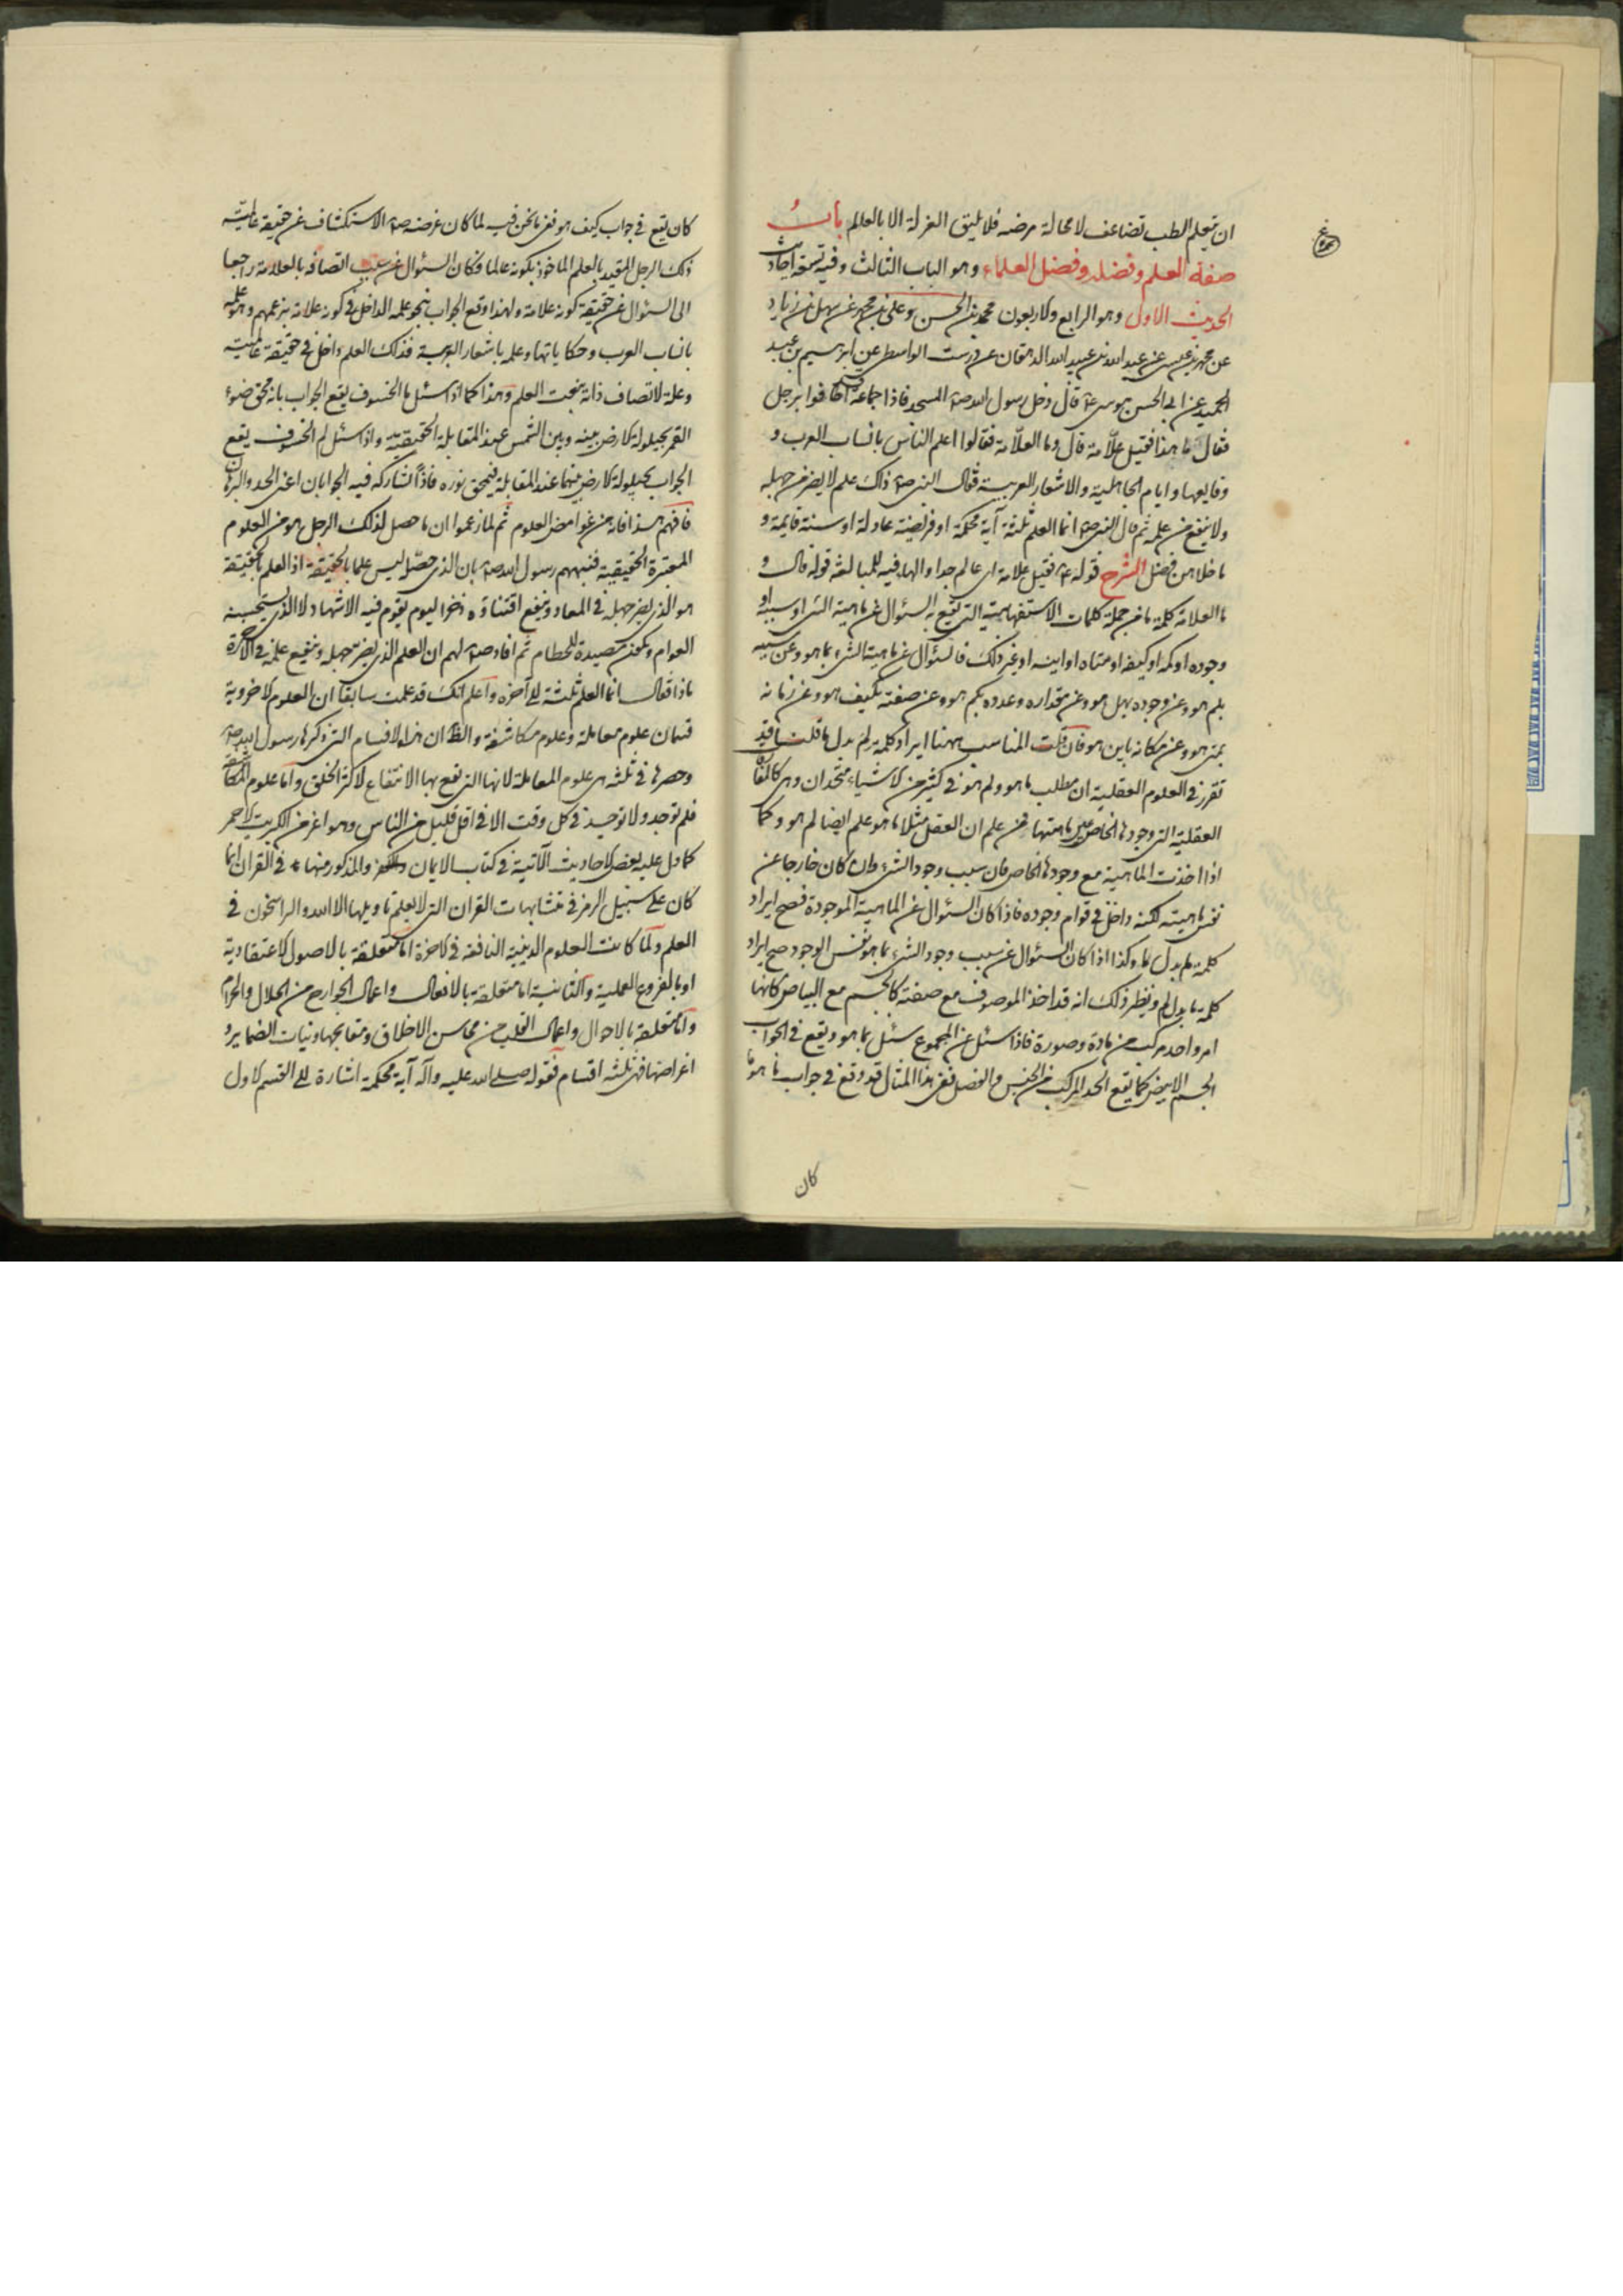 ان تعلم الطب تضاعف لا محالة مرضه فلا يليق العزلة الا بالعالم باب
صفة العلم وفضله وفضل العلماء وهو الباب الثالث وفيه تسعة احاديث
الحديث الاول وهو الرابع والاربعون محمد بن الحسن وعلى بن محمد عن سهل بن زياد
عن محمد بن عيسى عن عبيد الله بن عبد الله الدهقان عن درست الواسطى عن ابرهيم بن عبد
الحميد عن ابى الحسن موسى ع قال دخل رسول الله ص المسجد فاذا جماعة قد اطافوا برجل
فقال ما هذا فقيل علّامة قال وما العلّامة فقالوا اعلم الناس بانساب العرب و
وقايعها وايام الجاهلية والاشعار العربية فقال النبى ص ذلك علم لا يضر من جهله
ولا ينفع من علمه ثم قال النبى ص انما العلم ثلثة آية محكمة او فريضة عادلة او سنة قايمة و
ما خلاهن فضل الشرح قوله ع فقيل علامة اى عالم جدا والهاء فيه للمبالغة قوله قال و
ما العلامة كلمة ما من جملة كلمات الاستفهامية التى تقع به السئوال عن ماهية الشى او سببه او
وجوده او كمه او كيفه او متاه او اينه او غير ذلك فالسئوال عن ماهية الشىء بما هو وعن سببه
بلم هو وعن وجوده بهل هو وعن مقداره وعدده بكم هو وعن صفته بكيف هو وعن زمانه
بمتى هو وعن مكانه باين هو فان قلت المناسب ههنا ايراد كلمة لم بدل ما قلت قد
تقرر فى العلوم العقلية ان مطلب ما هو ولم هو فى كثير من الاشياء متحدان وهى كالمفارقات
العقلية التى وجودها الخاص عين ماهيتها فمن علم ان العقل مثلا ما هو علم ايضا لم هو وكما
اذا اخذت الماهية مع وجودها الخاص فان سبب وجود الشىء وان كان خارجا عن
نفس ماهيته لكنه داخل فى قوام وجوده فاذا كان السئوال عن الماهية الموجودة فصح ايراد
كلمة لم بدل ما وكذا اذا كان السئوال عن سبب وجود الشىء بما هو نفس الوجود صح ايراد
كلمة ما بدل لم ونظير ذلك انه قد اخذ الموصوف مع صفته كالجسم مع البياض كانها
امر واحد مركب من مادة وصورة فاذا سئل عن المجموع سئل بما هو ويقع فى الجواب
الجسم الابيض كما يقع الحد المركب من الجنس والفصل ففى هذا المثال قد وقع فى جواب ما هو ما
كان
كان يقع فى جواب كيف هو ففى ما نحن فيه لما كان غرضه ص الاستكشاف عن حقيقة عالمية
ذلك الرجل المقيد بالعلم الماخوذ بكونه عالما فكان السئوال عن سبب اتصافه بالعلامة راجعا
الى السئوال عن حقيقة كونه علامة ولهذا وقع الجواب بنحو علمه الداخل فى كونه علامة بزعمهم وهو علمه
بانساب العرب وحكاياتها وعلمه باشعار العربية فذلك العلم داخل فى حقيقة عالميته
وعلة لاتصاف ذاته بنعت العلم وهذا كما اذا سئل ما الخسوف يقع الجواب بانه محق ضوء
القمر بحيلولة الارض بينه وبين الشمس عند المقابلة الحقيقية واذا سئل لم الخسوف يقع
الجواب بحيلولة الارض بينهما عند المقابلة فيمحق نوره فاذاً تشارك فيه الجوابان اعنى الحد والبرهان
فافهم هذا فانه من غوامض العلوم ثم لما زعموا ان ما حصل لذلك الرجل هو من العلوم
المعتبرة الحقيقية فنبههم رسول الله ص بان الذى حصّله ليس علما بالحقيقة اذ العلم بالحقيقة
هو الذى يضر جهله فى المعاد وينفع اقتناؤه ذخرا ليوم يقوم فيه الاشهاد لا الذى يستحسنه
العوام ويكون مصيدة للحطام ثم افاد ص لهم ان العلم الذى يضر جهله وينفع علمه فى الآخرة
ماذا فقال انما العلم ثلثة الى آخره واعلم انك قد علمت سابقا ان العلوم الاخروية
قسمان علوم معاملة وعلوم مكاشفة والظ ان هذه الاقسام التى ذكرها رسول الله ص
وحصرها فى ثلثة هى علوم المعاملة لانها التى يقع بها الانتفاع لاكثر الخلق واما علوم المكاشفة
فلم توجد ولا توجد فى كل وقت الا فى اقل قليل من الناس وهو اعز من الكبريت الاحمر
كما دل عليه بعض الاحاديث الآتية فى كتاب الايمان والكفر والمذكور منها فى القران انما
كان على سبيل الرمز فى متشابهات القران التى لا يعلم تاويلها الا الله والراسخون فى
العلم ولما كانت العلوم الدينية النافعة فى الاخرة اما متعلقة بالاصول الاعتقادية
او بالفروع العملية والثانية اما متعلقة بالافعال واعمال الجوارح من الحلال والحرام
واما متعلقة بالاحوال واعمال القلب من محاسن الاخلاق ومقابحها ونيات الضماير و
اغراضها فهى ثلثه اقسام فقوله صلى الله عليه وآله آية محكمة اشارة الى القسم الاول